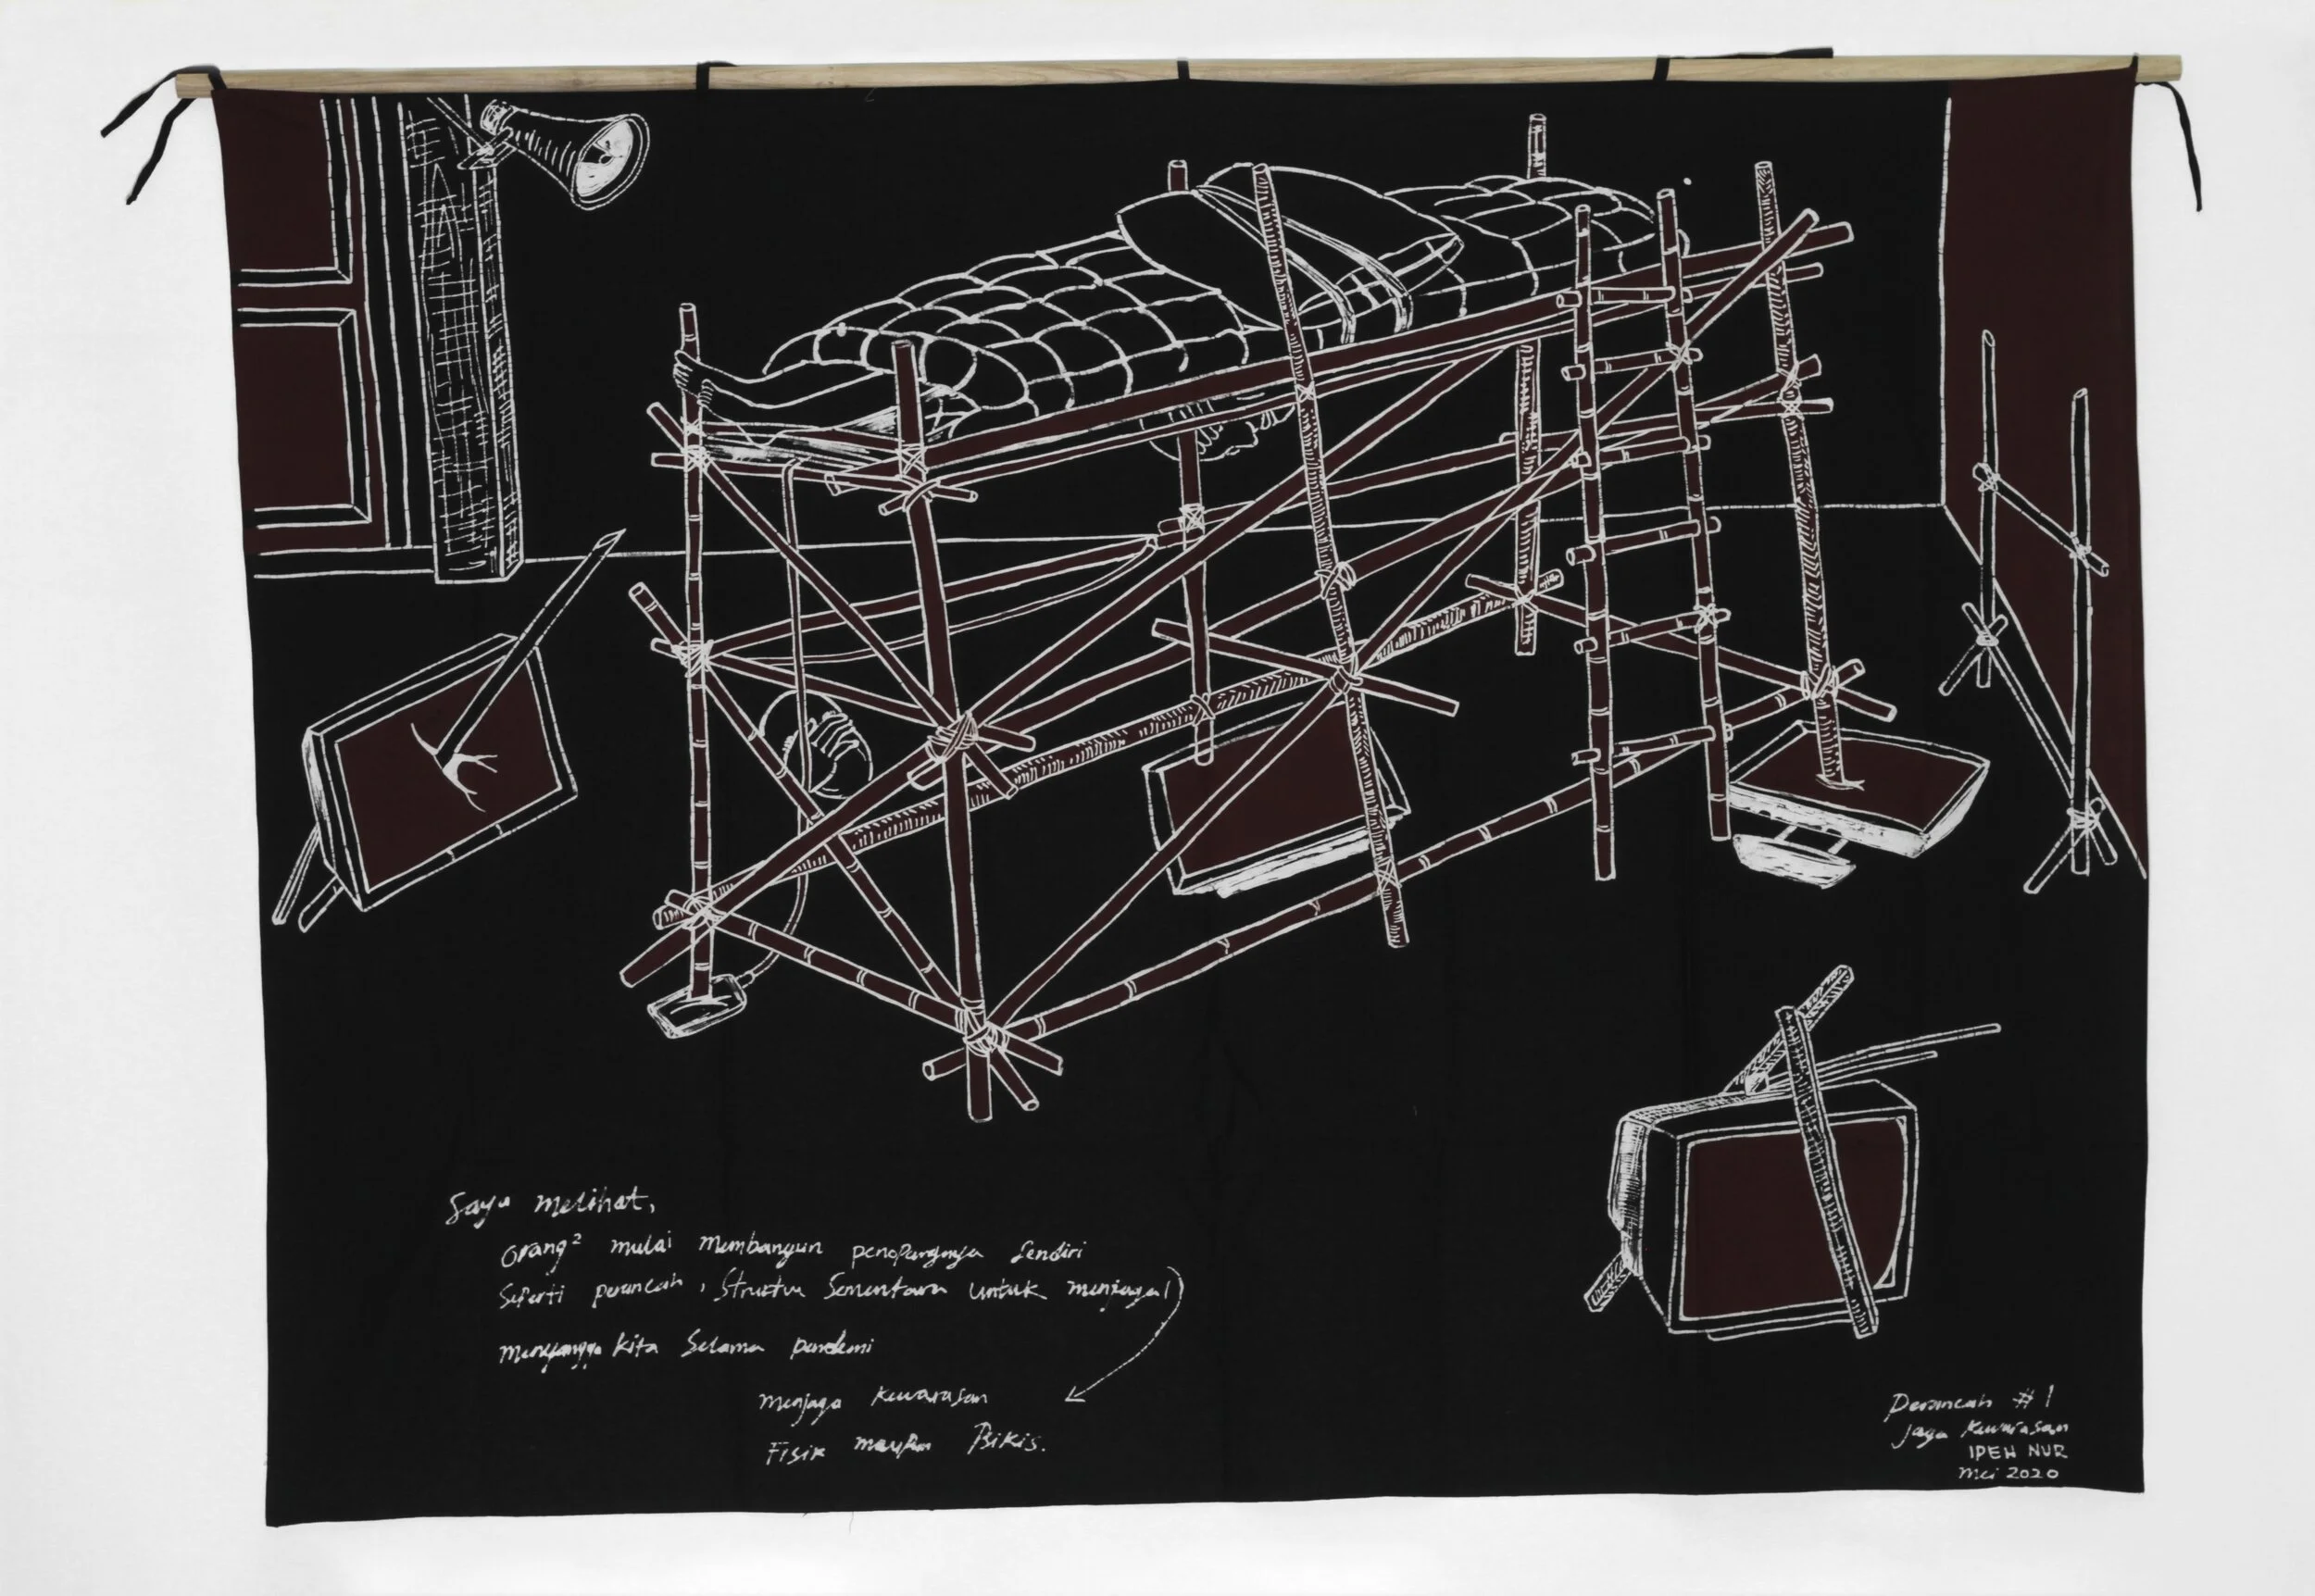 Saya melihat,
Orang² mulai membangun penopangnya sendiri
Seperti perancah, Struktur Sementara untuk menjaga /
menyangga kita Selama pandemi
menjaga kewarasan
Fisik maupun Psikis.
Perancah #1
Jaga Kewarasan
IPEH NUR
Mei 2020